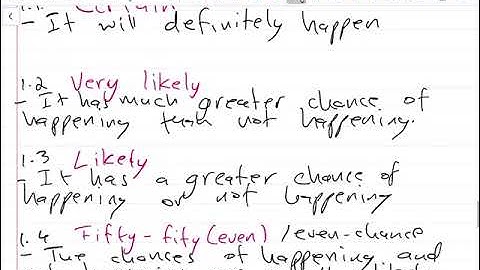 1.1 Certain
- It will definitely happen
1.2 Very likely
- It has much greater chance of
happening than not happening.
1.3 Likely
- It has a greater chance of
happening or not happening
1.4 Fifty-fity (even) /even-chance
- The chances of happening and